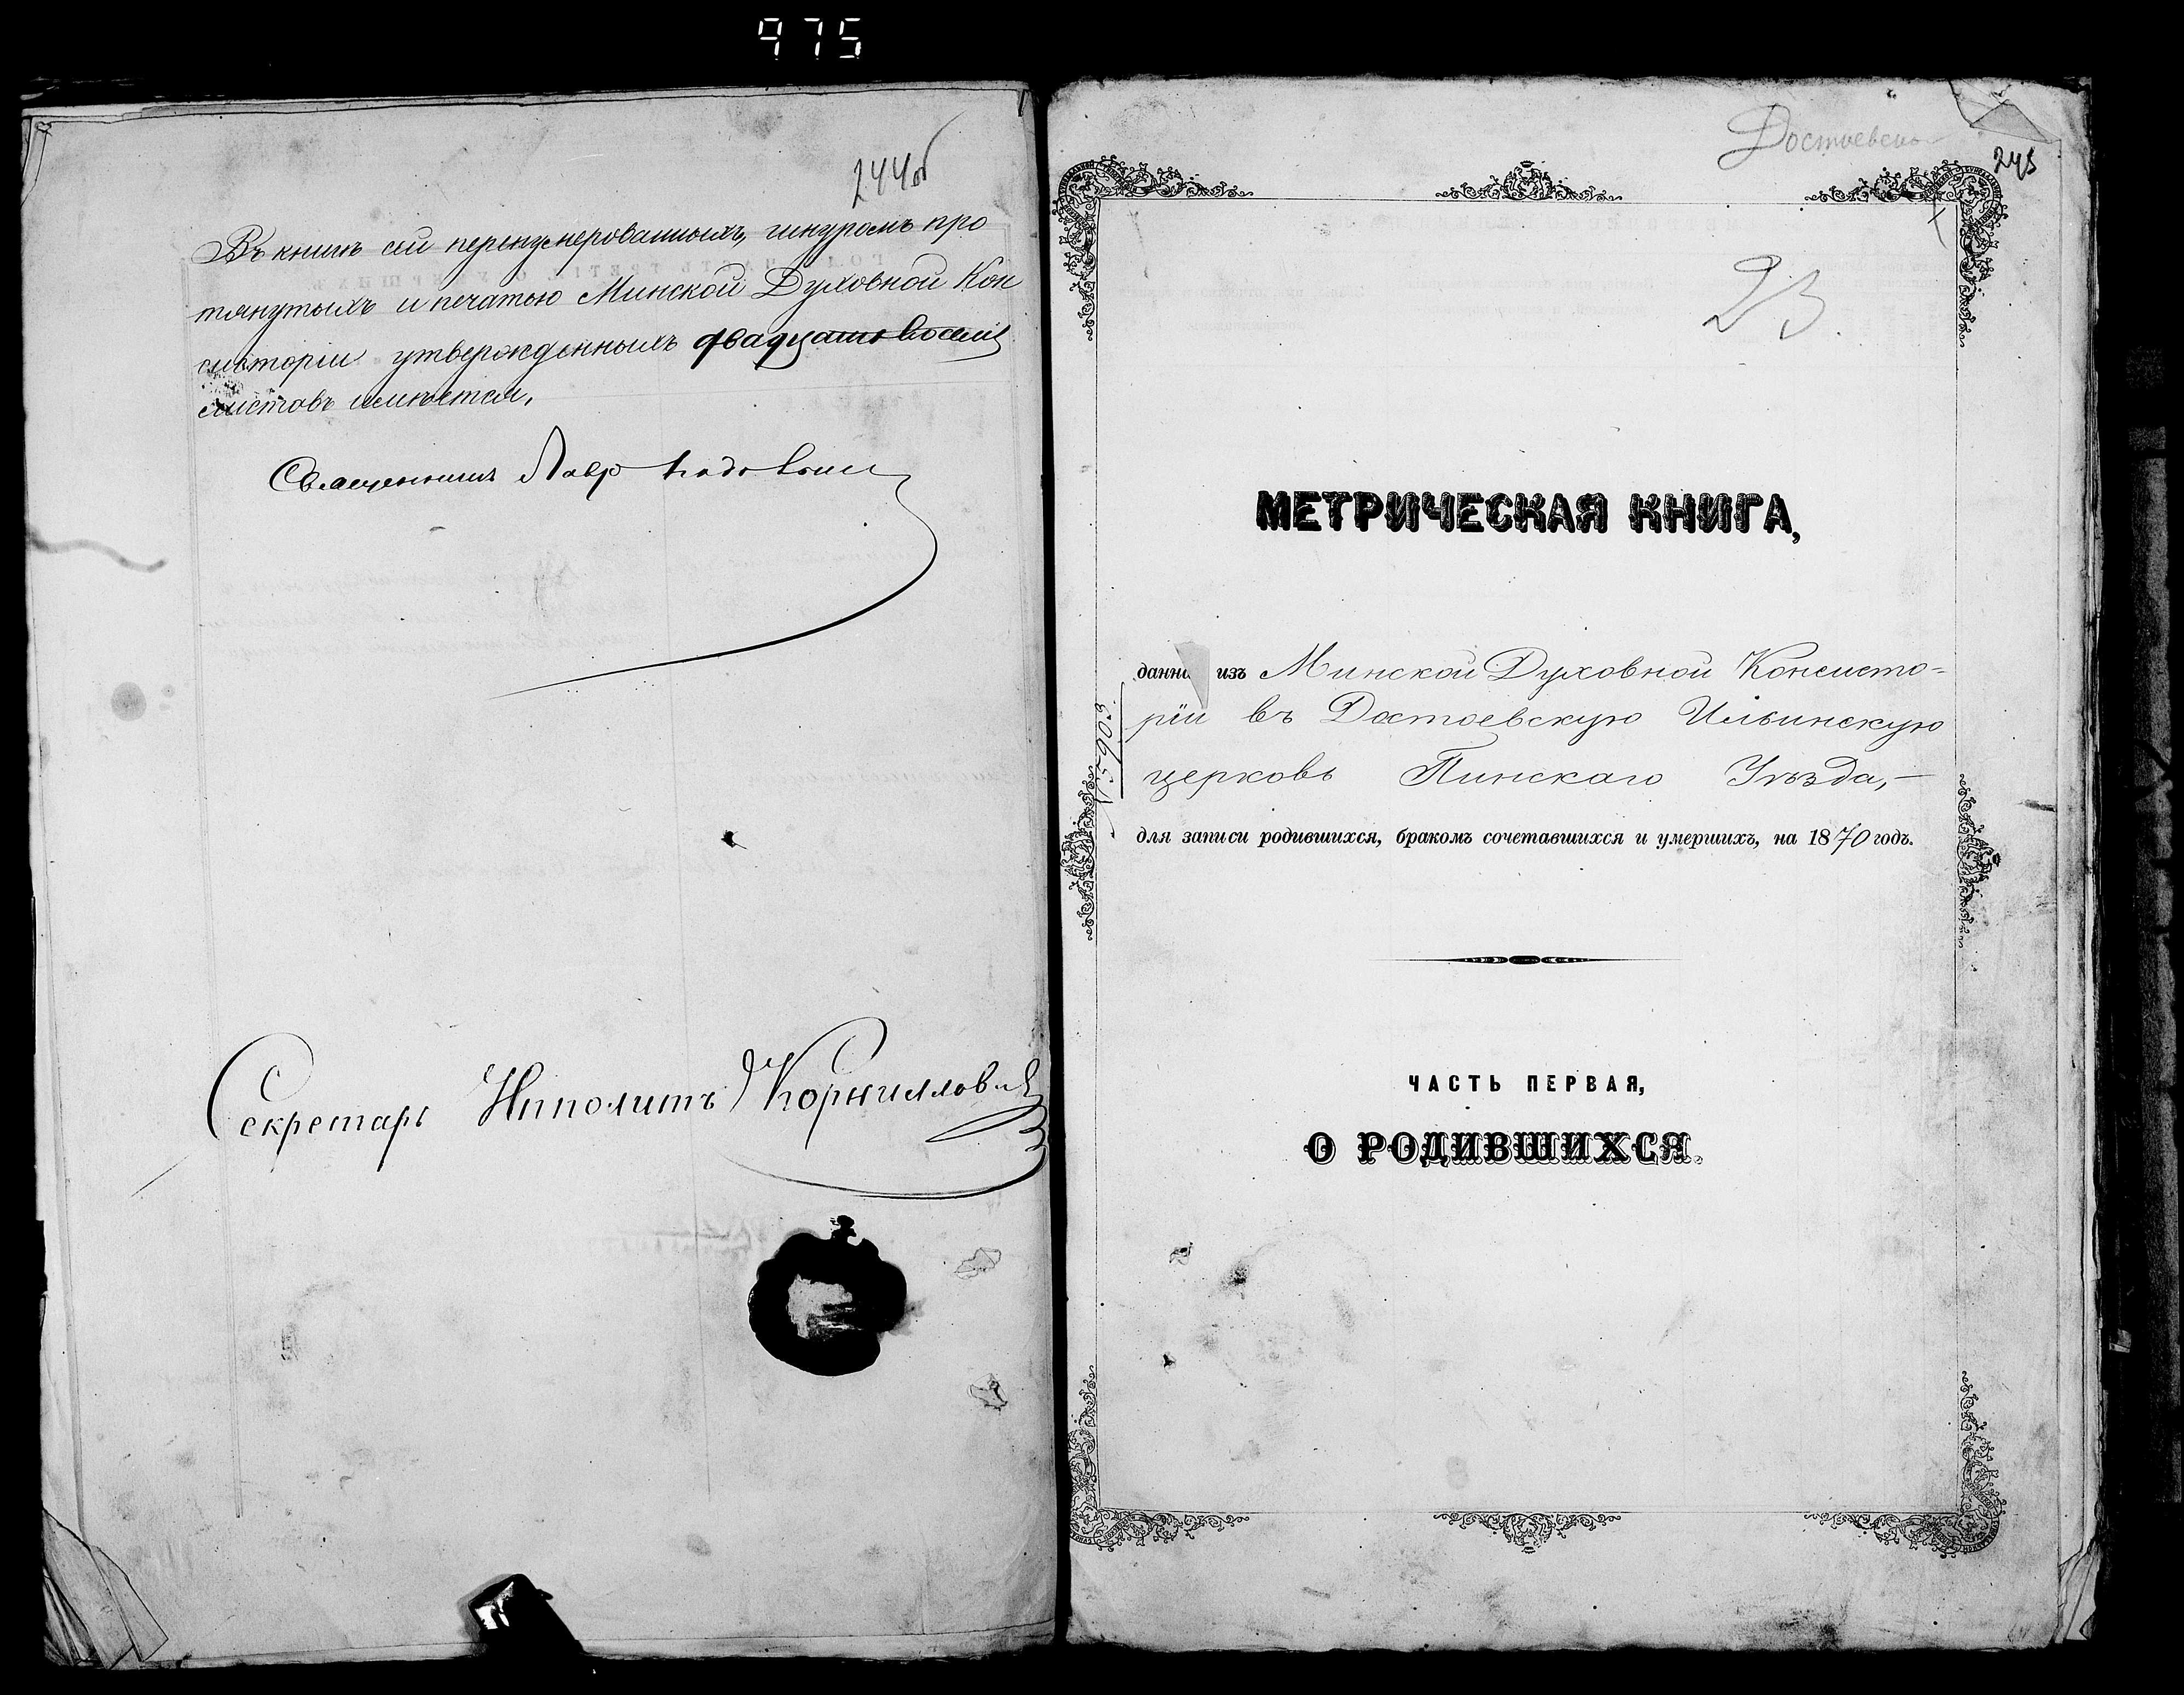 975
244об
Въ книгѣ сей перенумерованныхъ, шнуромъ про
тянутыхъ и печатью Минской Духовной Кон
систоріи утвержденныхъ двадцать восемь
листовъ имѣется,
Священникъ Лавр
Секретарь Ипполитъ Корнилович
Достоевска
245
23.
МЕТРИЧЕСКАЯ КНИГА,
данна изъ Минской Духовной Консисто-
ріи въ Достоевскую Ильинскую
церковь Пинскаго Уѣзда,—
15903.
для записи родившихся, бракомъ сочетавшихся и умершихъ, на 1870 годъ.
ЧАСТЬ ПЕРВАЯ,
О РОДИВШИХСЯ.